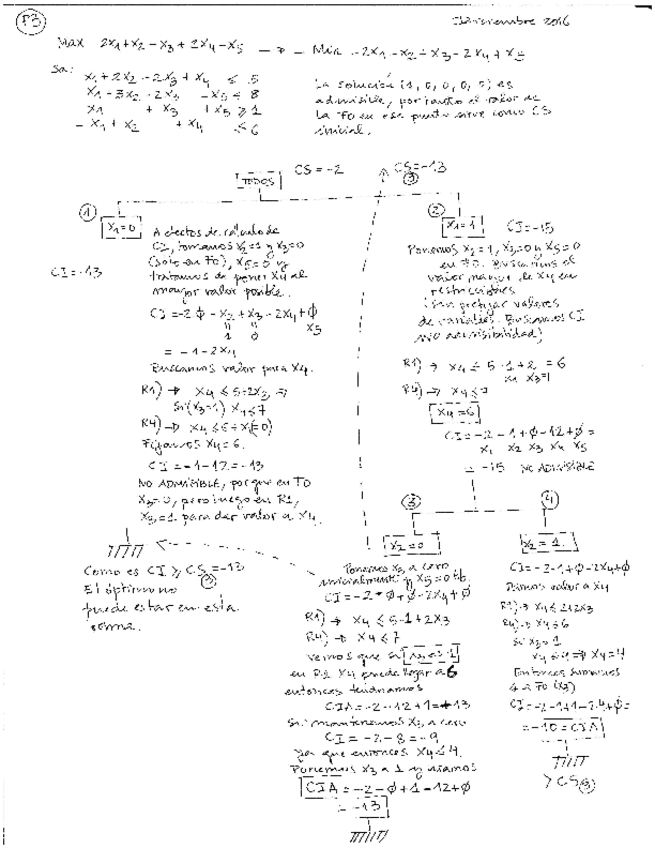 P3
Diciembre 2016
Max 2x1+x2-x3+2x4-x5 → Min -2x1-x2+x3-2x4+x5
sa:
x1+2x2-2x3+x4 ≤ 5
x1-3x2-2x3 -x5 ≤ 8
x1 +x3 +x5 ≥ 1
-x1+x2 +x4 ≤ 6
La solución (1, 0, 0, 0, 0) es
admisible, por tanto el valor de
la FO en ese punto sirve como CS
inicial.
TODOS
CS = -2
CS=-13
③
①
x1=0
CI=-13
A efectos de cálculo de
CI, tomamos x2=1 y x3=0
(solo en FO), x5=0 y
tratamos de poner x4 al
mayor valor posible.
CI=-2·0-x2+x3-2x4+0
1 0 x5
= -1-2x4
Buscamos valor para x4.
R1) → x4 ≤ 5+2x3 ⇒
Si (x3=1) x4≤7
R4) → x4 ≤ 6+x1(=0)
Fijamos x4=6.
CI=-1-12=-13
NO ADMISIBLE, porque en FO
x3=0, pero luego en R1,
x3=1 para dar valor a x4.
Como es CI ≥ CS③=-13
El óptimo no
puede estar en esta
rama.
②
x1=1
CI=-15
Ponemos x2=1, x3=0 y x5=0
en FO. Buscamos el
valor mayor de x4 en
restricciones
(sin prefijar valores
de variables. Buscamos CI
no admisibilidad)
R1) → x4 ≤ 5-1+2 = 6
x1 x3=1
R4) → x4 ≤7
x4=6
CI=-2-1+0-12+0=
x1 x2 x3 x4 x5
= -15 NO ADMISIBLE
③
x2=0
Ponemos x3 a cero
inicialmente y x5=0 tb.
CI=-2+0+0-2x4+0
R1) → x4 ≤ 5-1+2x3
R4) → x4 ≤ 7
vemos que si x3=1
en R1 x4 puede llegar a 6
entonces tendríamos
CIA=-2-12+1=-13
Si mantenemos x3 a cero
CI=-2-8=-9
ya que entonces x4≤4.
Ponemos x3 a 1 y usamos
CIA=-2-0+1-12+0
= -13
④
x2=1
CI=-2-1+0-2x4+0
Damos valor a x4
R1) → x4 ≤ 2+2x3
R4) → x4 ≤6
si x3=1
x4 ≤ 4 ⇒ x4=4
Entonces sumamos
a FO (x3)
CI=-2-1+1-2·4+0=
=-10=CIA
> CS③